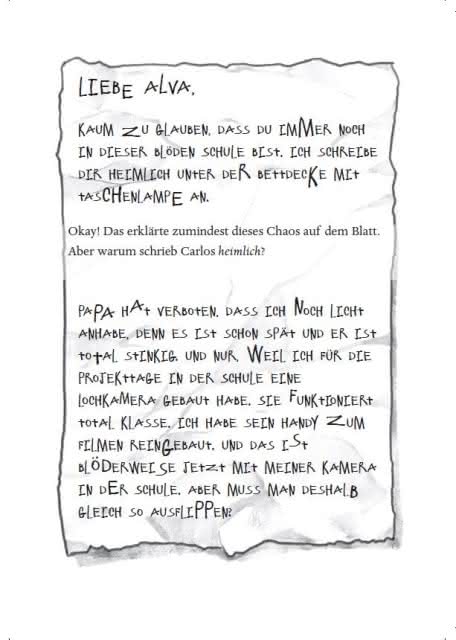 LIEBE ALVA,
KAUM ZU GLAUBEN, DASS DU IMMER NOCH
IN DIESER BLÖDEN SCHULE BIST. ICH SCHREIBE
DIR HEIMLICH UNTER DER BETTDECKE MIT
TASCHENLAMPE AN.
Okay! Das erklärte zumindest dieses Chaos auf dem Blatt.
Aber warum schrieb Carlos heimlich?
PAPA HAT VERBOTEN, DASS ICH NOCH LICHT
ANHABE, DENN ES IST SCHON SPÄT UND ER IST
TOTAL STINKIG. UND NUR, WEIL ICH FÜR DIE
PROJEKTTAGE IN DER SCHULE EINE
LOCHKAMERA GEBAUT HABE. SIE FUNKTIONIERT
TOTAL KLASSE. ICH HABE SEIN HANDY ZUM
FILMEN REINGEBAUT. UND DAS IST
BLÖDERWEISE JETZT MIT MEINER KAMERA
IN DER SCHULE. ABER MUSS MAN DESHALB
GLEICH SO AUSFLIPPEN?